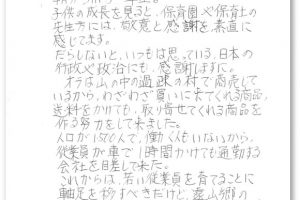 子供の成長を見ると、保育園や保育士の
先生方には、敬意と感謝を素直に
感じてます。
だらしないと、いつもは思っている、日本の
行政や政治にも、感謝しますに。
オラは山の中の過疎の村で商売して
いますから、わざわざ買いに来てくれる商品、
送料をかけても、取り寄せてくれる商品を
作る努力をして来ました。
人口が1500人で、働く人もいないから、
従業員が車で1時間かけても通勤する
会社を目差して来た。
これからは、若い従業員を育てることに
軸足を移すべきだけど、遠山郷の